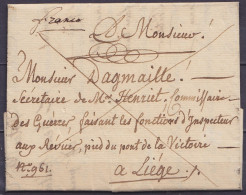 franco
A Monsieur
Monsieur Dagmaille
Secrétaire de Mr. Henriet, Commissaire
des Guerres faisant les fonctions d'Inspecteur
aux Revües, pied du pont de la Victoire
No. 961.
a Liége